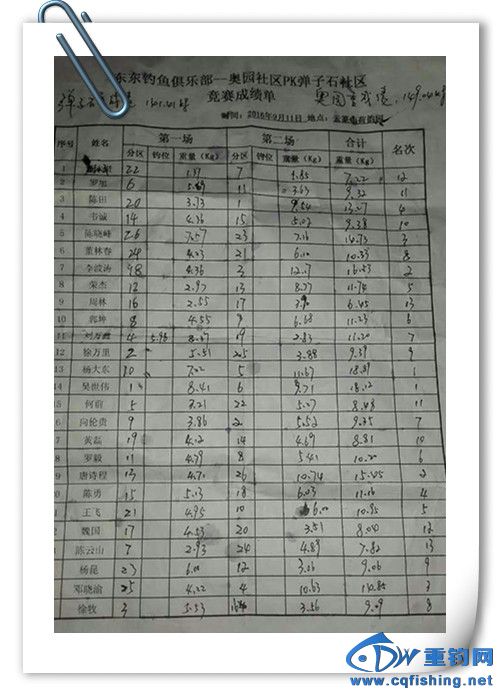 东东钓鱼俱乐部--奥园社区PK弹子石社区
竞赛成绩单
时间：2016年9月11日 地点：
序号 姓名 第一场 第二场 合计 名次
分区 钓位 重量（Kg） 分区 钓位 重量（Kg） 重量（Kg）
1 22 7 7.22 12
2 罗旭 6 11 3.63 9.32 11
3 陈田 20 3.73 1 9.54 13.27 4
4 韦诚 14 4.36 15 5.02 9.38 10
5 陈晓峰 26 7.57 23 7.16 14.73 3
6 董林春 24 4.23 21 6.10 10.33 8
7 李波涛 18 4.36 3 12.17 16.53 2
8 荣杰 12 2.97 13 8.77 11.74 5
9 周林 16 2.55 17 6.45 13
10 郭坤 8 4.55 9 6.68 11.23 6
11 4 5.96 19 2.83 11.20 7
12 徐万里 2 5.51 25 3.88 9.39 9
13 杨大东 10 7.22 5 11.67 18.89 1
14 吴世伟 1 8.41 6 9.71 18.12 1
15 何前 5 3.21 22 5.27 8.48 11
6 向伦贵 9 3.86 2 5.52 7
7 黄磊 19 4.12 14 4.69 8.81 10
8 罗毅 11 4.79 8 5.41 10.20 6
9 唐诗程 13 4.71 26 10.74 15.45 2
20 陈勇 15 5.13 18 6.03 11.16 4
王飞 21 4.95 10 6.00 10.95 5
魏国 17 4.53 20 3.51 8.04 12
陈云山 7 2.93 24 4.89 7.82 13
杨昆 23 6.00 12 3.06 9.06 9
邓晓渝 25 4.22 4 10.63 14.85 3
徐牧 3 5.53 16 3.56 9.09 8
重钓网
www.cqfishing.net